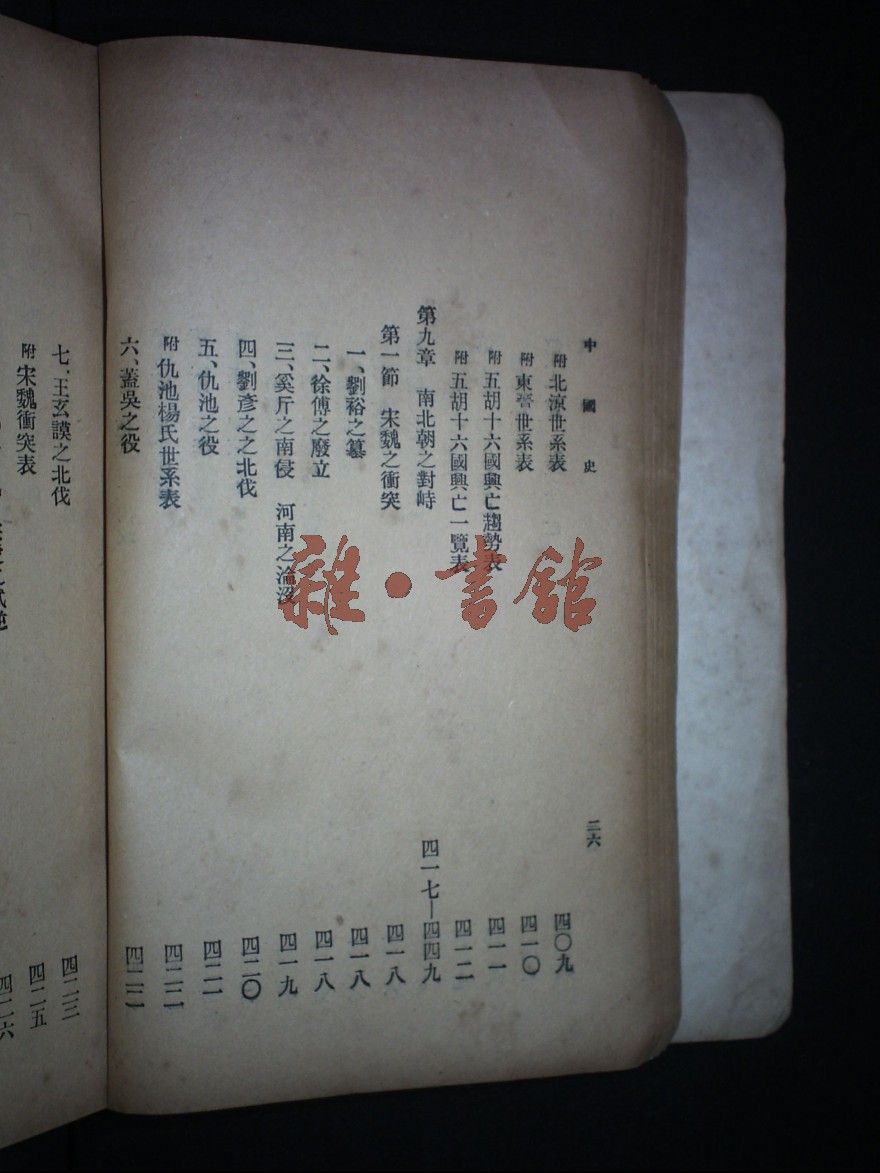 中國史 二六
附 北涼世系表 四〇九
附 東晉世系表 四一〇
附 五胡十六國興亡趨勢表 四一一
附 五胡十六國興亡一覽表 四一二
第九章 南北朝之對峙 四一七—四四九
第一節 宋魏之衝突 四一八
一、劉裕之篡 四一八
二、徐傅之廢立 四一八
三、奚斤之南侵 河南之淪沒 四一九
四、劉彥之之北伐 四二〇
五、仇池之役 四二一
附 仇池楊氏世系表 四二二
六、蓋吳之役 四二二
七、王玄謨之北伐 四二三
附 宋魏衝突表 四二五
四二六
雜·書館